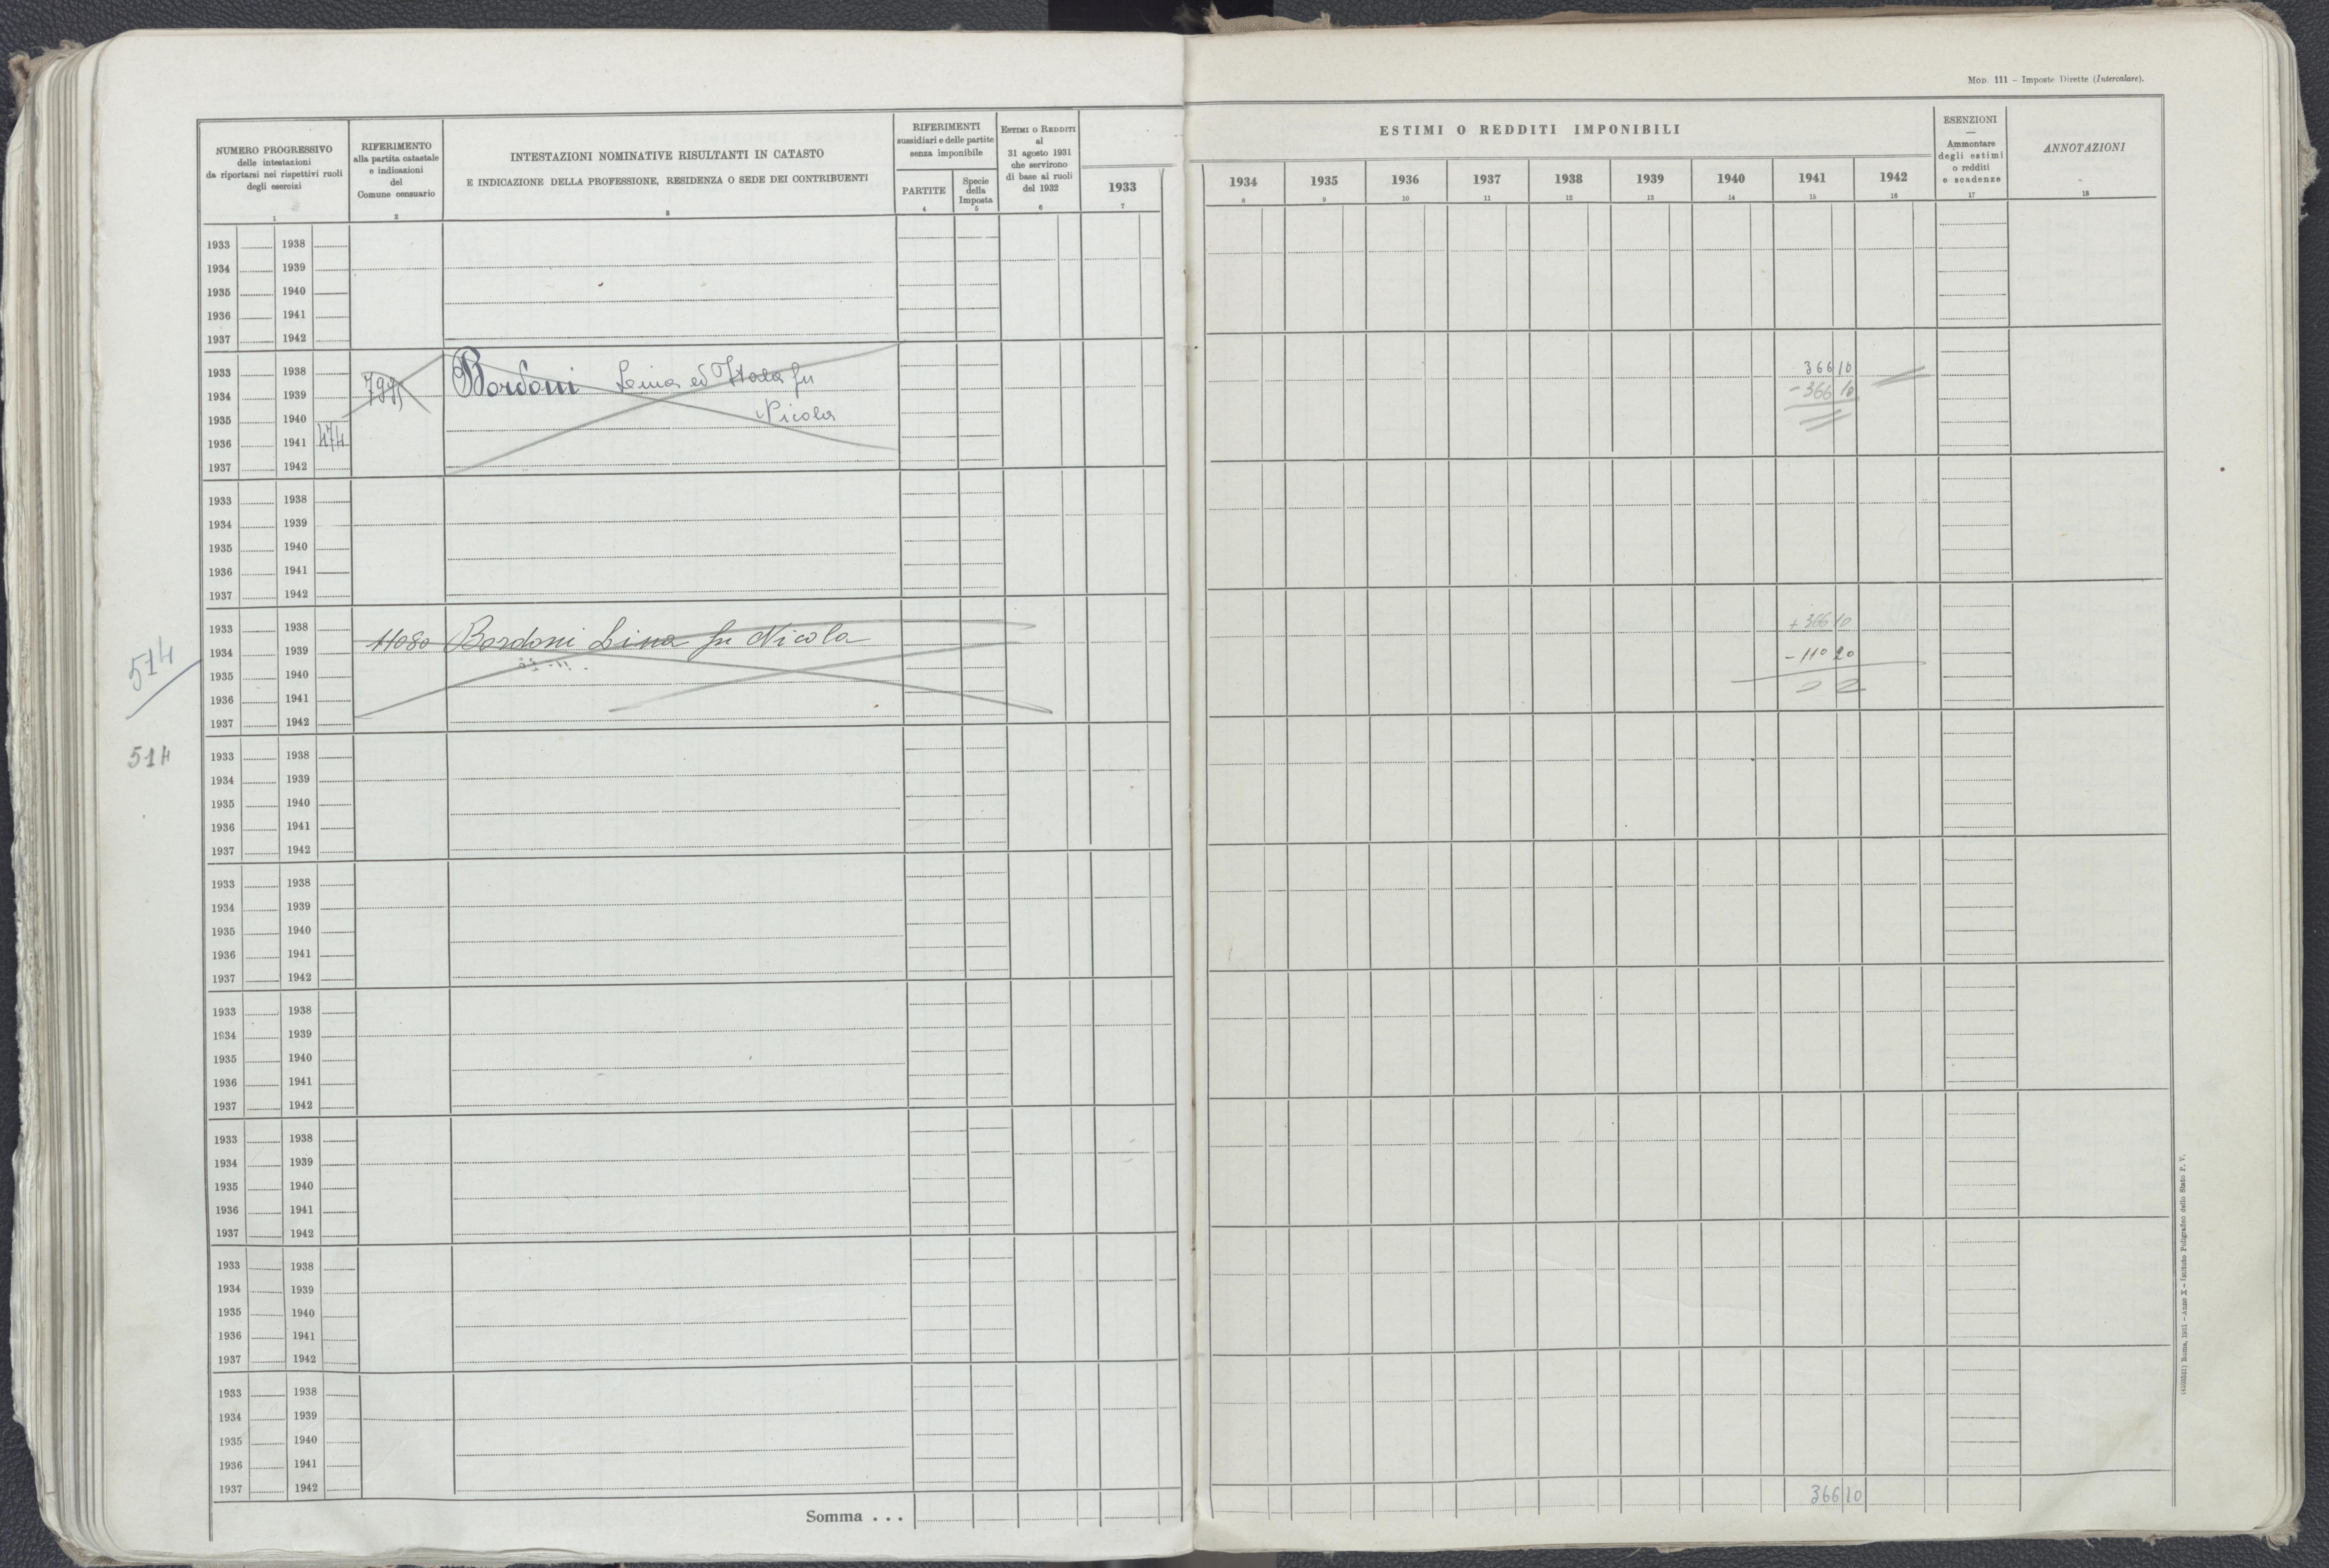 Mod. 111 - Imposte Dirette (Intercalare).
NUMERO PROGRESSIVO
delle intestazioni
da riportarsi nei rispettivi ruoli
degli esercizi
1
RIFERIMENTO
alla partita catastale
e indicazioni
del
Comune censuario
2
INTESTAZIONI NOMINATIVE RISULTANTI IN CATASTO
E INDICAZIONE DELLA PROFESSIONE, RESIDENZA O SEDE DEI CONTRIBUENTI
3
RIFERIMENTI
sussidiari e delle partite
senza imponibile
PARTITE
4
Specie
della
Imposta
5
Estimi o Redditi
al
31 agosto 1931
che servirono
di base ai ruoli
del 1932
6
1933
7
ESTIMI O REDDITI IMPONIBILI
1934 1935 1936 1937 1938 1939 1940 1941 1942
8 9 10 11 12 13 14 15 16
ESENZIONI
Ammontare
degli estimi
o redditi
e scadenze
17
ANNOTAZIONI
18
1933 1938
1934 1939
1935 1940
1936 1941
1937 1942
1933 1938 Bordoni Lina ed Itala fu 366 10
1934 1939 - 366 10
1935 1940 Nicola
1936 1941 474
1937 1942
1933 1938
1934 1939
1935 1940
1936 1941
1937 1942
1933 1938 11080 Bordoni Lina fu Nicola + 366 10
1934 1939 - 110 20
1935 1940
1936 1941
1937 1942
514
514
1933 1938
1934 1939
1935 1940
1936 1941
1937 1942
1933 1938
1934 1939
1935 1940
1936 1941
1937 1942
1933 1938
1934 1939
1935 1940
1936 1941
1937 1942
1933 1938
1934 1939
1935 1940
1936 1941
1937 1942
1933 1938
1934 1939
1935 1940
1936 1941
1937 1942
1933 1938
1934 1939
1935 1940
1936 1941
1937 1942
Somma . . . 366 10
Roma, 1931 - Anno X - Istituto Poligrafico dello Stato P. V.